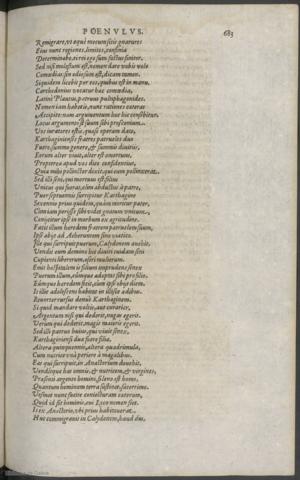 POENVLVS. 683
Remigrare, vt æquè mecum sitis gnarures
Eius nunc regiones, limites, confinia
Determinabo, ei rei ego sum factus finitor.
Sed nisi molestum est, nomen dare vobis volo
Comœdiai: sin odio sum est, dicam tamen.
Siquidem licebit per eos, quibus est in manu.
Carchedonius vocatur hæc comœdia,
Latinè Plautus, patruus pultiphagonides.
Nomen iam habetis, nunc rationes cæteras
Accipite: nam argumentum hoc hic censebitur.
Locus argumento est suum sibi proscenium.
Vos iuratores estis. quæso operam date,
Karthaginienses fratres patrueles duo
Fuere, summo genere, & summis diuitiis,
Eorum alter viuit, alter est emortuus.
Propterea apud vos dico confidentius,
Quia mihi pollinctor dixit, qui eum pollinxerat.
Sed illi seni, qui mortuus est filius
Vnicus qui fuerat, clàm abductus à patre,
Puer septuennis surripitur Karthagine
Sexennio prius quidem, quàm moritur pater,
Quoniam periisse sibi videt gnatum vnicum,
Coniicitur ipse in morbum ex ægritudine.
Facit illum heredem fratrem patruelem suum,
Ipse abijt ad Acheruntem sine viatico.
Ille qui surripuit puerum, Calydonem auehit,
Vendit eum domino hic diuiti cuidam seni
Cupienti liberorum, osori mulierum.
Emit hospitalem is filium imprudens senex
Puerum illum, eumque adoptat sibi pro filio.
Eumque heredem fecit, cùm ipse obijt diem.
Is illic adolescens habitat in illisce ædibus.
Reuertor rursus denuò Karthaginem.
Si quid mandare vultis, aut curarier,
Argentum nisi qui dederit, nugas egerit.
Verùm qui dederit, magis maiores egerit.
Sed illi patruo huius, qui viuit senex,
Karthaginiensi duæ fuere filiæ,
Altera quinquennis, altera quadrimula,
Cum nutrice vnà periere à magalibus.
Eas qui surripuit, in Anactorium deuehit,
Venditque has omnis, & nutricem, & virgines,
Præsenti argento homini, si leno est homo,
Quantum hominum terra sustinet, sacerrimo.
Vosmet nunc facite coniecturam cæterum,
Quid id sit hominis, cui Lyco nomen siet.
Is ex Anactorio, vbi prius habitauerat,
Huc commigrauit in Calydonem, haud diu,